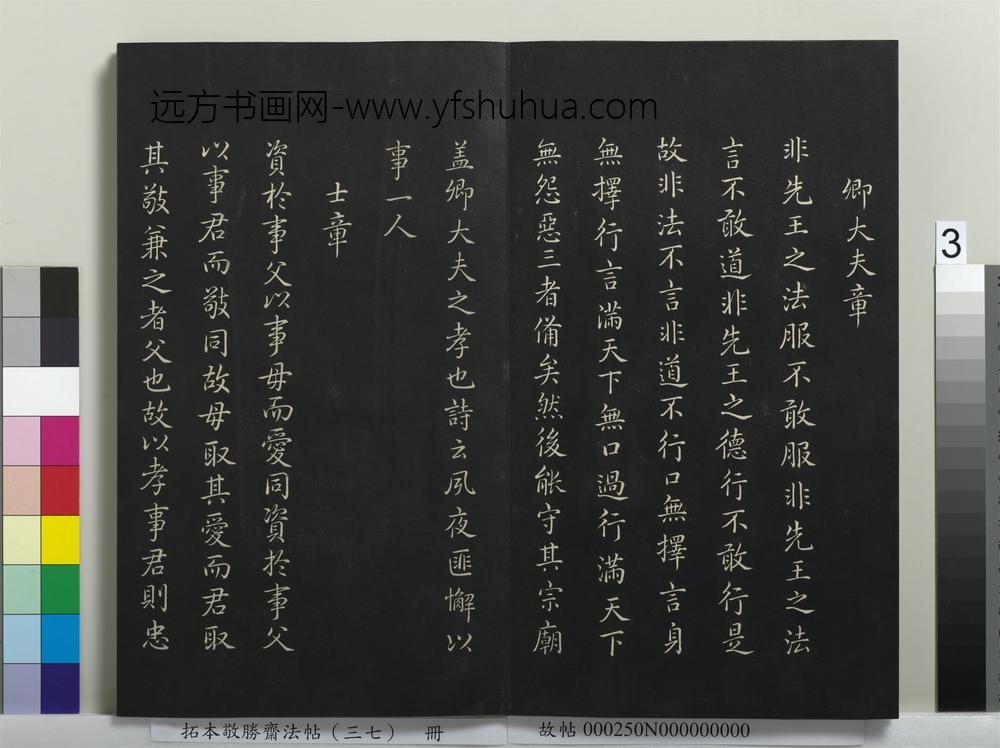 远方书画网-www.yfshuhua.com
卿大夫章
非先王之法服不敢服非先王之法
言不敢道非先王之德行不敢行是
故非法不言非道不行口無擇言身
無擇行言滿天下無口過行滿天下
無怨惡三者備矣然後能守其宗廟
盖卿大夫之孝也詩云夙夜匪懈以
事一人
士章
資於事父以事母而愛同資於事父
以事君而敬同故母取其愛而君取
其敬兼之者父也故以孝事君則忠
3
拓本敬勝齋法帖（三七） 冊
故帖 000250N000000000